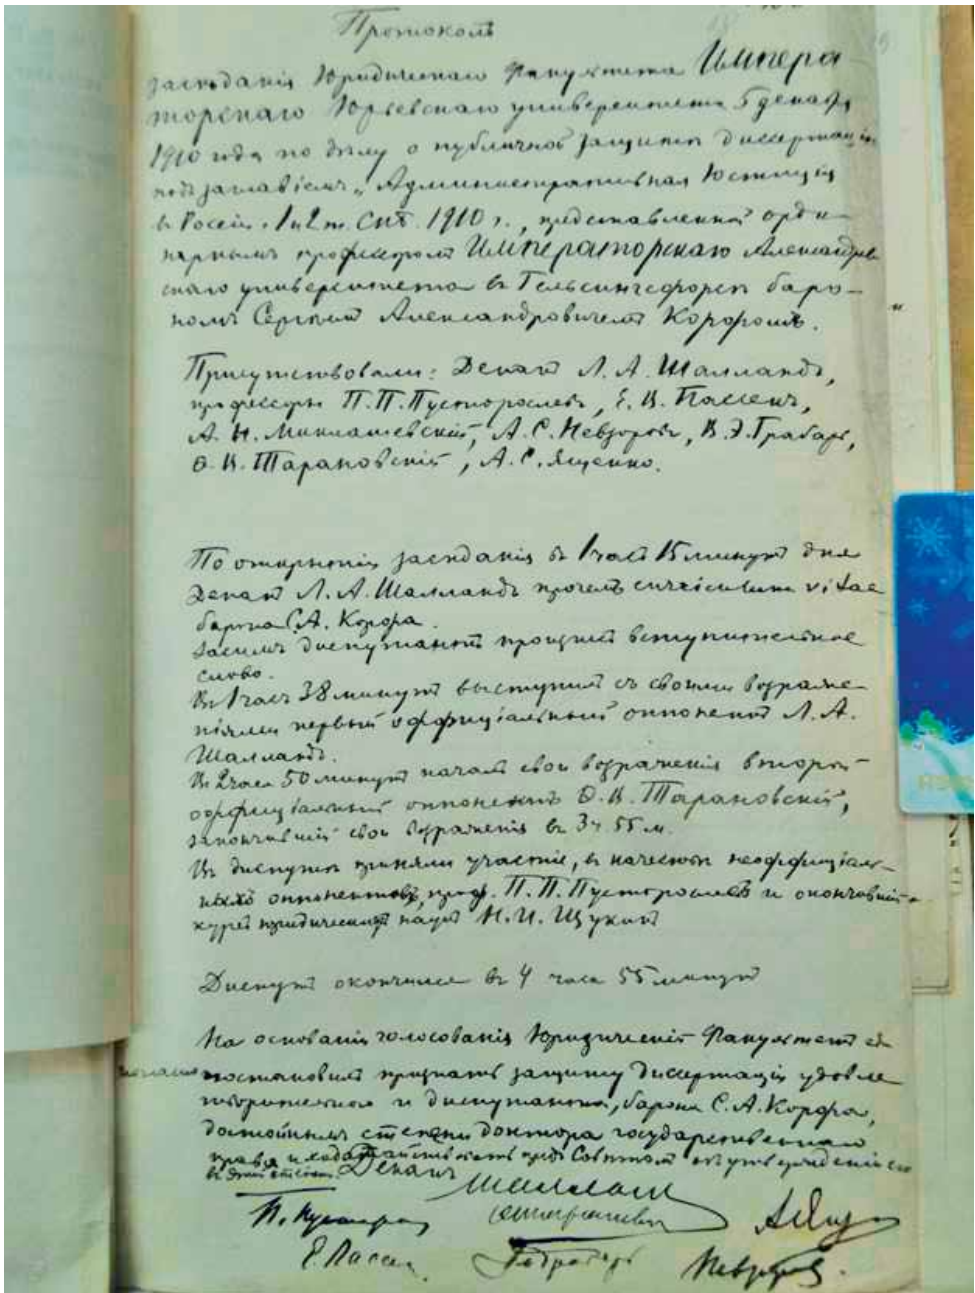 Протоколъ
засѣданія Юридическаго Факультета Импера
торскаго Юрьевскаго университета 5 декабря
1910 года по дѣлу о публичной защитѣ диссертаціи
подъ заглавіемъ „Административная Юстиція
въ Россіи". 1 и 2 т. СПБ. 1910 г., представленной орди-
нарнымъ профессоромъ Императорскаго Александров
скаго университета въ Гельсингфорсѣ баро-
номъ Сергѣемъ Александровичемъ Корфомъ.
Присутствовали: Деканъ Л. А. Шалландъ,
профессоры П. П. Пусторослевъ, Е. В. Пассекъ,
А. Н. Миклашевскій, А. С. Невзоровъ, В. Э. Грабарь,
Ѳ. В. Тарановскій, А. С. Ященко.
По открытіи засѣданія въ 1 часъ 15 минутъ дня
Деканъ Л. А. Шалландъ прочелъ curriculum vitae
барона С. А. Корфа.
Засимъ диспутантъ произнесъ вступительное
слово.
Въ 1 часъ 38 минутъ выступилъ съ своими возраже
ніями первый оффиціальный оппонентъ Л. А.
Шалландъ.
Въ 2 часа 50 минутъ началъ свои возраженія второй
оффиціальный оппонентъ Ѳ. В. Тарановскій,
закончившій свои возраженія въ 3 ч. 55 м.
Въ диспутѣ приняли участіе, въ качествѣ неоффиціаль-
ныхъ оппонентовъ, проф. П. П. Пусторослевъ и окончившій
курсъ юридическихъ наукъ Н. И. Щукинъ
Диспутъ окончился въ 4 часа 55 минутъ
На основаніи голосованія Юридическій Факультетъ ед
иногласно постановилъ признать защиту диссертаціи удовле
творительною и диспутанта, барона С. А. Корфа,
достойнымъ степени доктора государственнаго
права и ходатайствовать предъ Совѣтомъ объ утвержденіи его
въ этой степени. Деканъ
Шалландъ
П. Пусторослевъ
Е. Пассекъ
Грабарь
Невзоровъ.